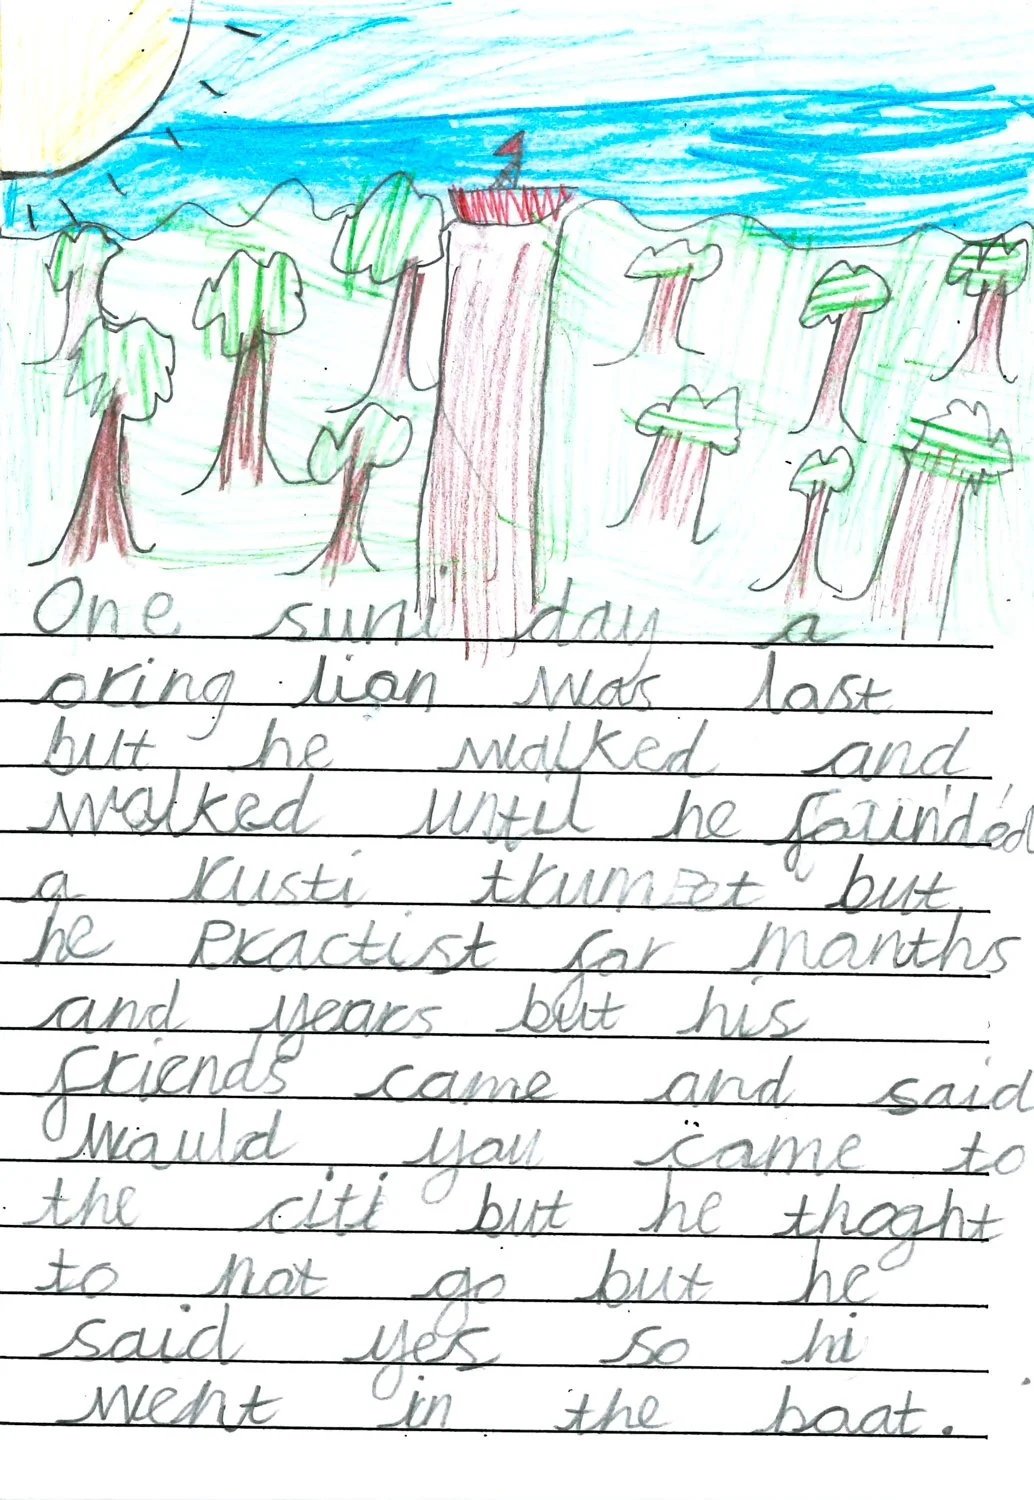 One suni day a
oring lion was lost
but he walked and
walked until he founded
a rusti trumpet but
he practist for months
and years but his
friends came and said
would you came to
the citi but he thoght
to not go but he
said yes so hi
went in the boat.